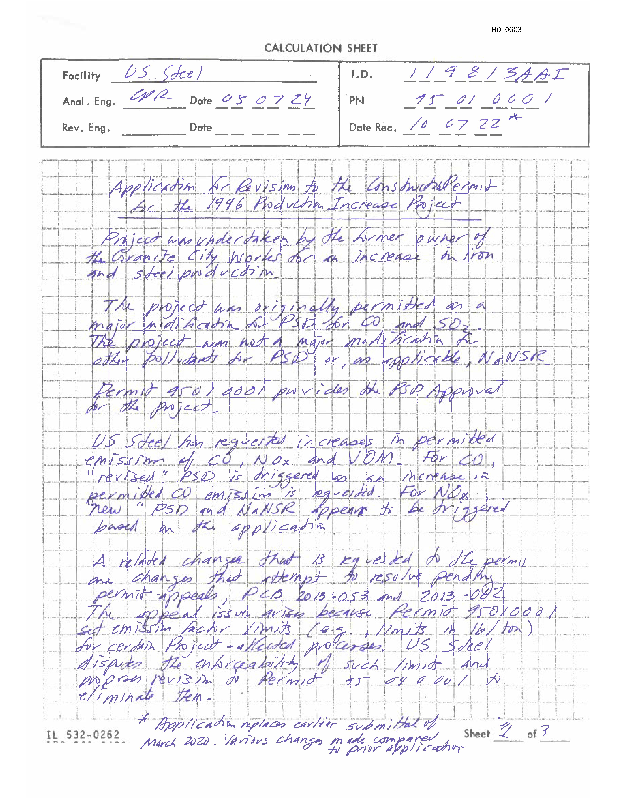 CALCULATION SHEET
Facility US Steel I.D. 119813AAI
Anal. Eng. Date 05 07 24 PN 95 01 0001
Rev. Eng. Date Date Rec. 10 07 22 *
Application for Revision to the Construction Permit
for the 1996 Production Increase Project
Project was undertaken by the former owner of
the Granite City Works for an increase in iron
and steel production
The project was originally permitted as a
major modification for PSD for CO and SO2.
The project was not a major modification for
other pollutants for PSD or, as applicable, NaNSR
Permit 95010001 provides the PSD Approval
for the project.
US Steel has requested increases in permitted
emission of CO, NOx and VOM. For CO,
"revised" PSD is triggered as an increase in
permitted CO emission is requested. For NOx,
"new" PSD and NaNSR appears to be triggered
based on the application
A related changes that is requested to the permit
are changes that attempt to resolve pending
permit appeals, PCB 2013-053 and 2013-062
The appeal issue arises because Permit 95010001
set emission factor limits (e.g., limits in lb/ton)
for certain Project-affected processes. US Steel
disputes the enforceability of such limits and
proposes revision to Permit to
eliminate them.
* Application replaces earlier submittal of
March 2020. Various changes made compared
to prior application
IL 532-0262 Sheet 2 of 3